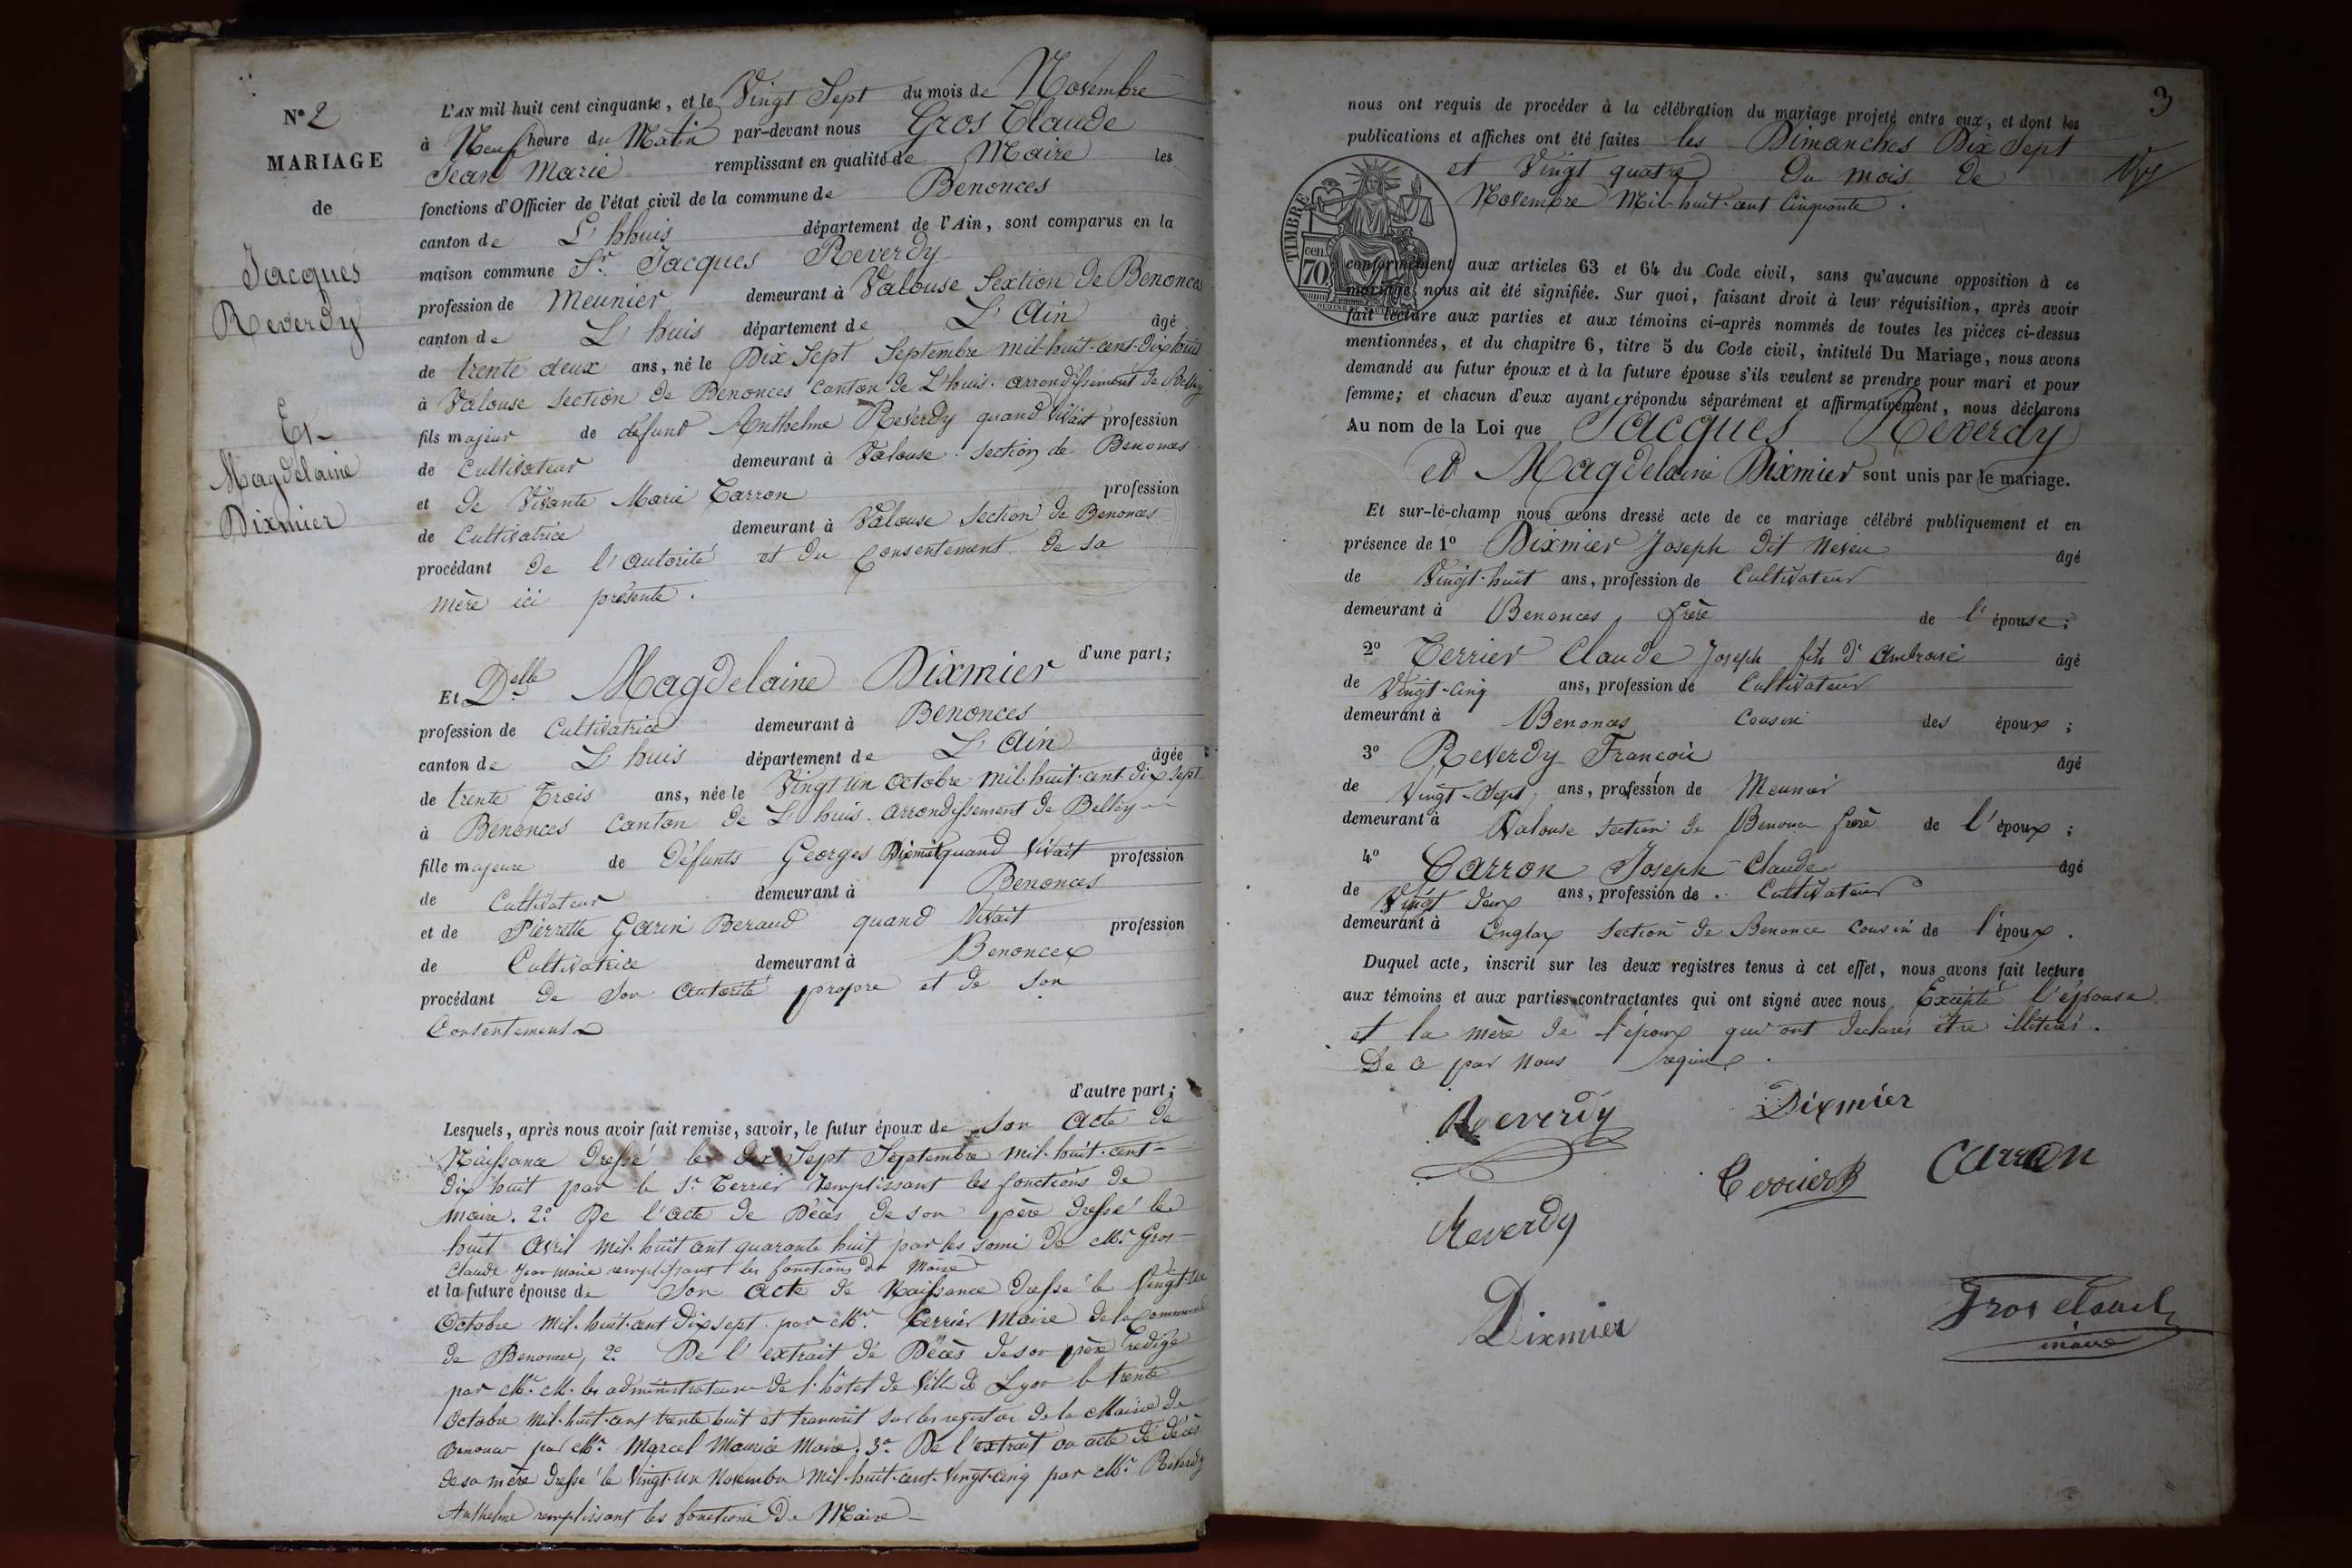 N° 2
MARIAGE
de
Jacques
Reverdy
Et
Magdelaine
Dixmier
L'AN mil huit cent cinquante, et le Vingt Sept du mois de Novembre
à Neuf heure du Matin par-devant nous Gros Claude
Jean Marie remplissant en qualité de Maire les
fonctions d'Officier de l'état civil de la commune de Benonces
canton de L'hhuis département de l'Ain, sont comparus en la
maison commune Sr. Jacques Reverdy
profession de Meunier demeurant à Valouse Sextion de Benonces
canton de L'huis département de L'Ain âgé
de trente deux ans, né le Dix Sept Septembre mil-huit-cent-dix huit
à Valouse Section de Benonces Canton de L'huis. arrondissement de Belley
fils majeur de défund Anthelme Réverdy quand Vivait profession
de Cultivateur demeurant à Valouse. Section de Benonces.
et de Vivante Marie Carron profession
de Cultivatrice demeurant à Valouse Section de Benonces
procédant de l'autorité et du Consentement de sa
mère ici présente.
d'une part;
Et Delle Magdelaine Dixmier
profession de Cultivatrice demeurant à Benonces
canton de L'huis département de L'Ain âgée
de trente Trois ans, née le Vingt un Octobre mil-huit-cent-dix sept
à Benonces Canton de L'huis. arrondissement de Belley
fille majeure de Défunts Georges Dixmier quand Vivait profession
de Cultivateur demeurant à Benonces
et de Pierrette Garin Beraud quand Vivait profession
de Cultivatrice demeurant à Benonces
procédant de Son Autorité propre et de son
Consentement
d'autre part;
Lesquels, après nous avoir fait remise, savoir, le futur époux de Son Acte de
Naissance dressé le dix Sept Septembre mil-huit-cent-
dix huit par le Sr Terrier remplissant les fonctions de
maire. 2° De l'acte de Décès de son père dressé le
huit Avril mil-huit cent quarante huit par les de Mr Gros
Claude Jean Marie remplissant les fonctions de Maire
et la future épouse de Son Acte de Naissance dressé le Vingt-un
Octobre mil-huit-cent Dix sept par Mr. Terrier Maire de la Commune
de Benonces, 2° De l'extrait de Décès de son père rédigé
par Mr. M. les administrateurs de l'hôtel de Ville de Lyon le trente
Octobre mil-huit-cent trente huit et transcrit sur les registres de la Mairie de
Benonces par Mr. Marcel Maurice Maire. 3° De l'extrait ou acte de décès
de sa mère dressé le Vingt-un Novembre mil-huit-cent-Vingt-cinq par Mr. Reverdy
Anthelme remplissant les fonctions de Maire
3
nous ont requis de procéder à la célébration du mariage projeté entre eux, et dont les
publications et affiches ont été faites les Dimanches Dix Sept
et Vingt quatre du mois de
Novembre Mil-huit-cent Cinquante.
TIMBRE
70 cen.
conformément aux articles 63 et 64 du Code civil, sans qu'aucune opposition à ce
mariage nous ait été signifiée. Sur quoi, faisant droit à leur réquisition, après avoir
fait lecture aux parties et aux témoins ci-après nommés de toutes les pièces ci-dessus
mentionnées, et du chapitre 6, titre 5 du Code civil, intitulé Du Mariage, nous avons
demandé au futur époux et à la future épouse s'ils veulent se prendre pour mari et pour
femme; et chacun d'eux ayant répondu séparément et affirmativement, nous déclarons
Au nom de la Loi que Jacques Reverdy
et Magdelaine Dixmier sont unis par le mariage.
Et sur-le-champ nous avons dressé acte de ce mariage célébré publiquement et en
présence de 1° Dixmier Joseph dit Neveu âgé
de Vingt-huit ans, profession de Cultivateur
demeurant à Benonces, frère de l'épouse;
2° Terrier Claude Joseph fils d'Ambroise âgé
de Vingt-cinq ans, profession de Cultivateur
demeurant à Benonces Cousin des époux;
3° Reverdy François âgé
de Vingt-Sept ans, profession de Meunier
demeurant à Valouse Section de Benonces frère de l'époux;
4° Carron Joseph-Claude âgé
de Vingt deux ans, profession de Cultivateur
demeurant à Onglax Section de Benonce Cousin de l'époux.
Duquel acte, inscrit sur les deux registres tenus à cet effet, nous avons fait lecture
aux témoins et aux parties contractantes qui ont signé avec nous Excépté l'épouse
et la mère de l'époux qui ont déclarés être illitérés.
De ce par nous requis.
Reverdy
Dixmier
Terrier
Carron
Reverdy
Dixmier
Gros Claude
maire